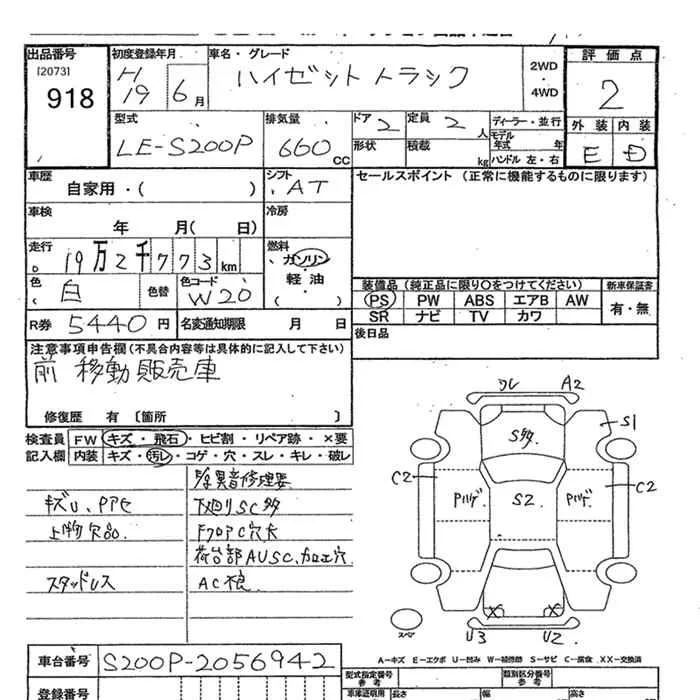 出品番号
[2073]
918
初度登録年月
H19 6月
車名・グレード
ハイゼットトラック
2WD
・
4WD
評価点
2
外装 内装
E D
型式
LE-S200P
排気量
660 CC
ドア 2
定員 2 人
ディーラー・並行
形状
積載 kg
モデル年式 年
ハンドル 左・右
車歴
自家用・( )
シフト
AT
セールスポイント (正常に機能するものに限ります)
車検
年 月( 日)
冷房
走行
19万2千773km
燃料
ガソリン
軽油
( )
色
( 白
色替
色コード
W20
装備品(純正品に限り○をつけてください)
新車保証書
PS PW ABS エアB AW
有・無
SR ナビ TV カワ
R券 5440円
名変通知期限 月 日
後日品
注意事項申告欄(不具合内容等は具体的に記入して下さい)
前 移動販売車
修復歴 有〔箇所 〕
検査員
記入欄
FW キズ・飛石・ヒビ割・リペア跡・×要
内装 キズ・汚レ・コゲ・穴・スレ・キレ・破レ
異音修理要
キズU、Pアセ
下廻りSC多
上物欠品
FフロアC穴大
荷台部AUSC、加工穴
スタッドレス
AC不良
ワレ A2
S多
S1
C2
Pハゲ
S2
Pハゲ
C2
X X
U3 U2
スペア
A-キズ E-エクボ U-凹み W-補修跡 S-サビ C-腐食 XX-交換済
車台番号
S200P-2056942
型式指定番号
参考
類別区分番号
参考
登録番号
車庫証明用
参考
長さ
幅
高さ